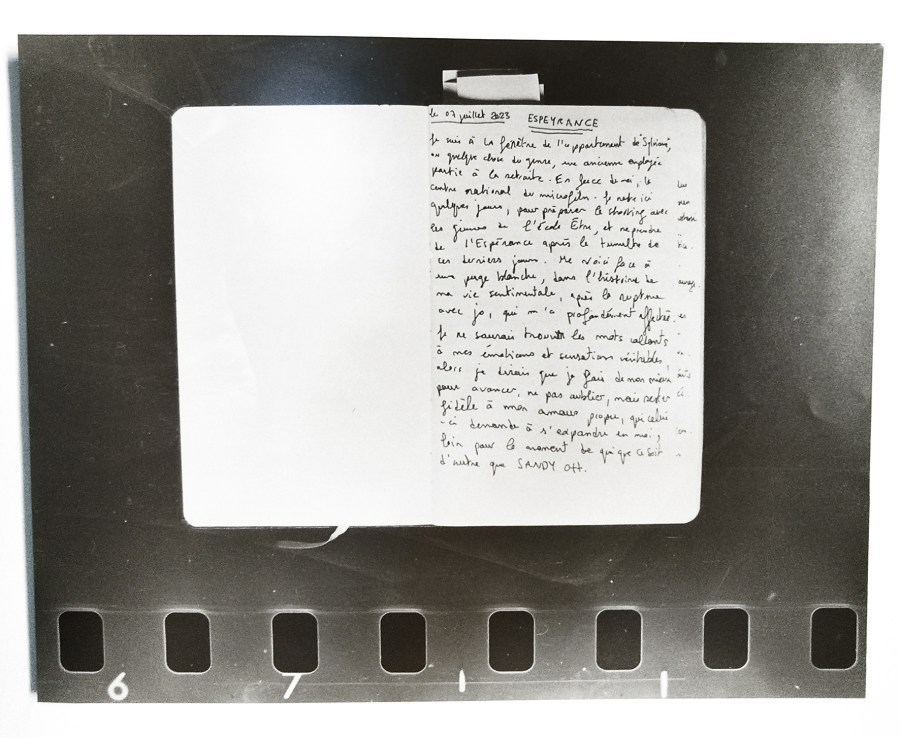 le 07 juillet 2023 ESPEYRANCE
Je suis à la fenêtre de l'appartement de "Sylviane",
ou quelque chose du genre, une ancienne employée
partie à la retraite. En face de moi, le
centre national du microfilm. Je reste ici
quelques jours, pour préparer le shooting avec
les gémeaux de l'École Être, et reprendre
de l'Espérance après le tumulte de
ces derniers jours. Me voici face à
une page blanche, dans l'histoire de
ma vie sentimentale, après la rupture
avec Jo, qui m'a profondément affectée.
Je ne saurais trouver les mots collants
à mes émotions et sensations véritables,
alors je dirais que je fais de mon mieux
pour avancer, ne pas oublier, mais rester
fidèle à mon amour propre, que celui
-ci demande à s'expandre en moi,
loin pour le moment de qui que ce soit
d'autre que SANDY Ott.
6 7